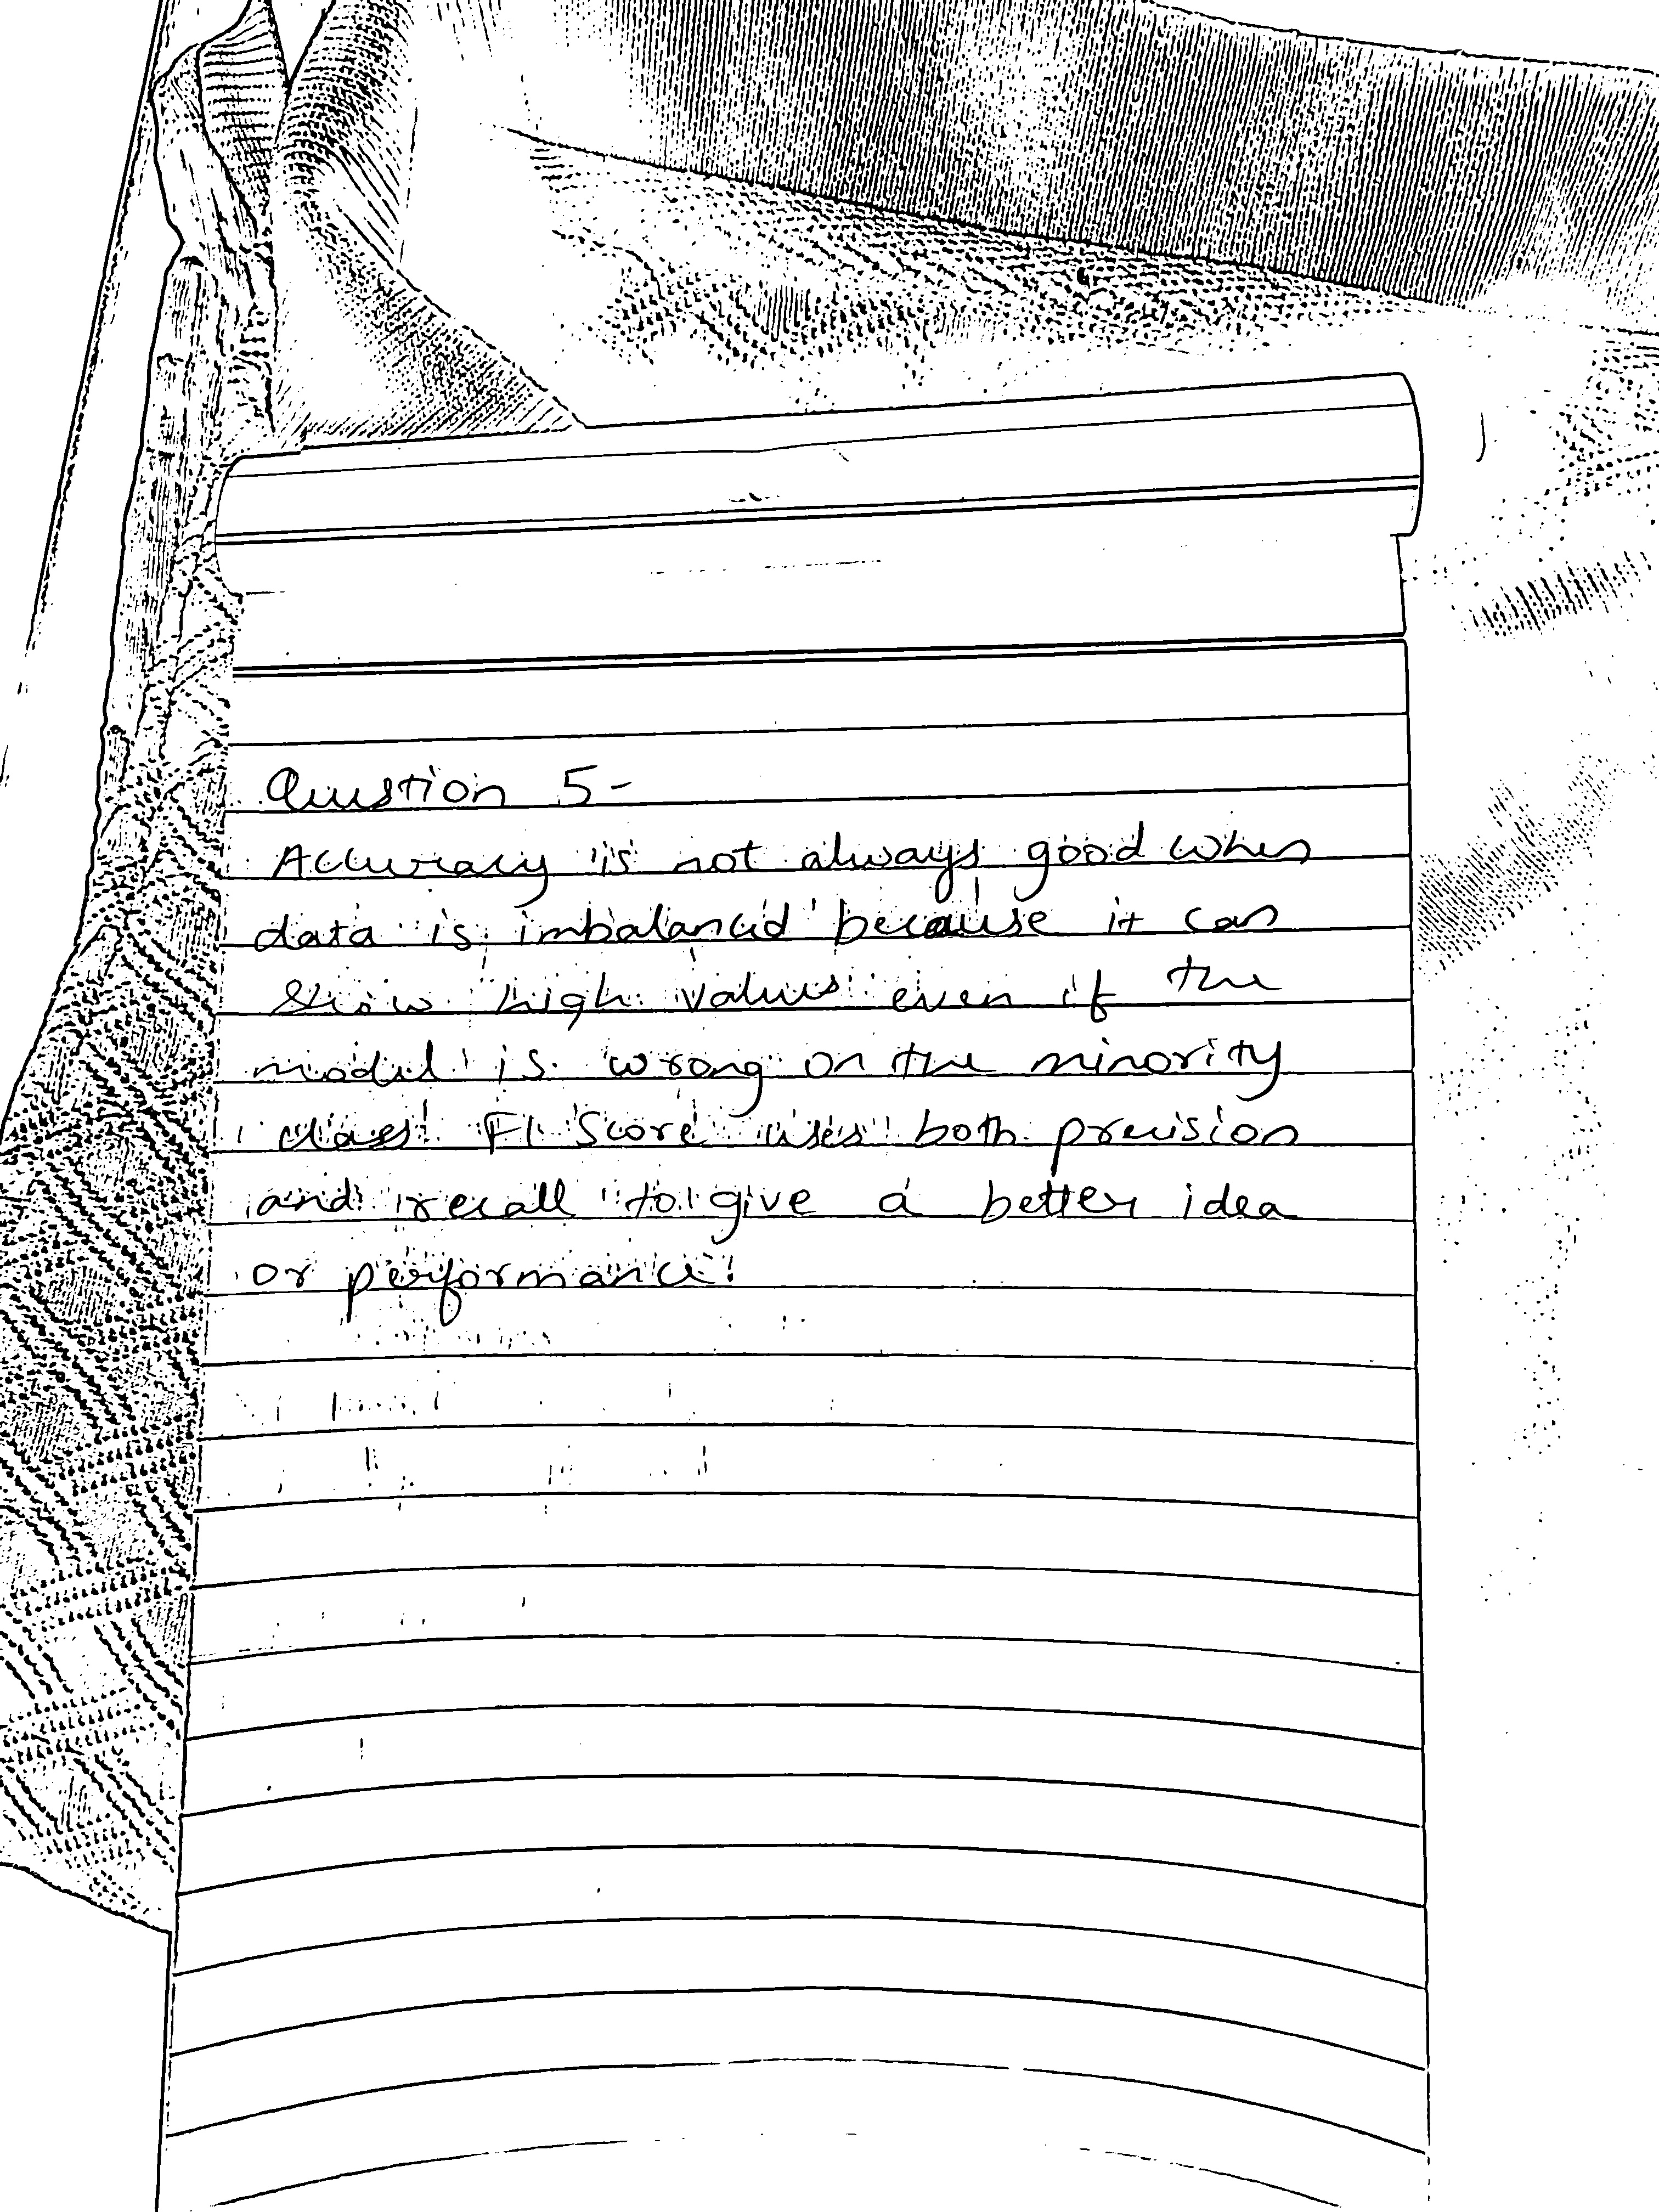 Question 5-
Accuracy is not always good when
data is imbalanced because it can
show high values even if the
model is wrong on the minority
class F1 Score uses both precision
and recall to give a better idea
or performance.